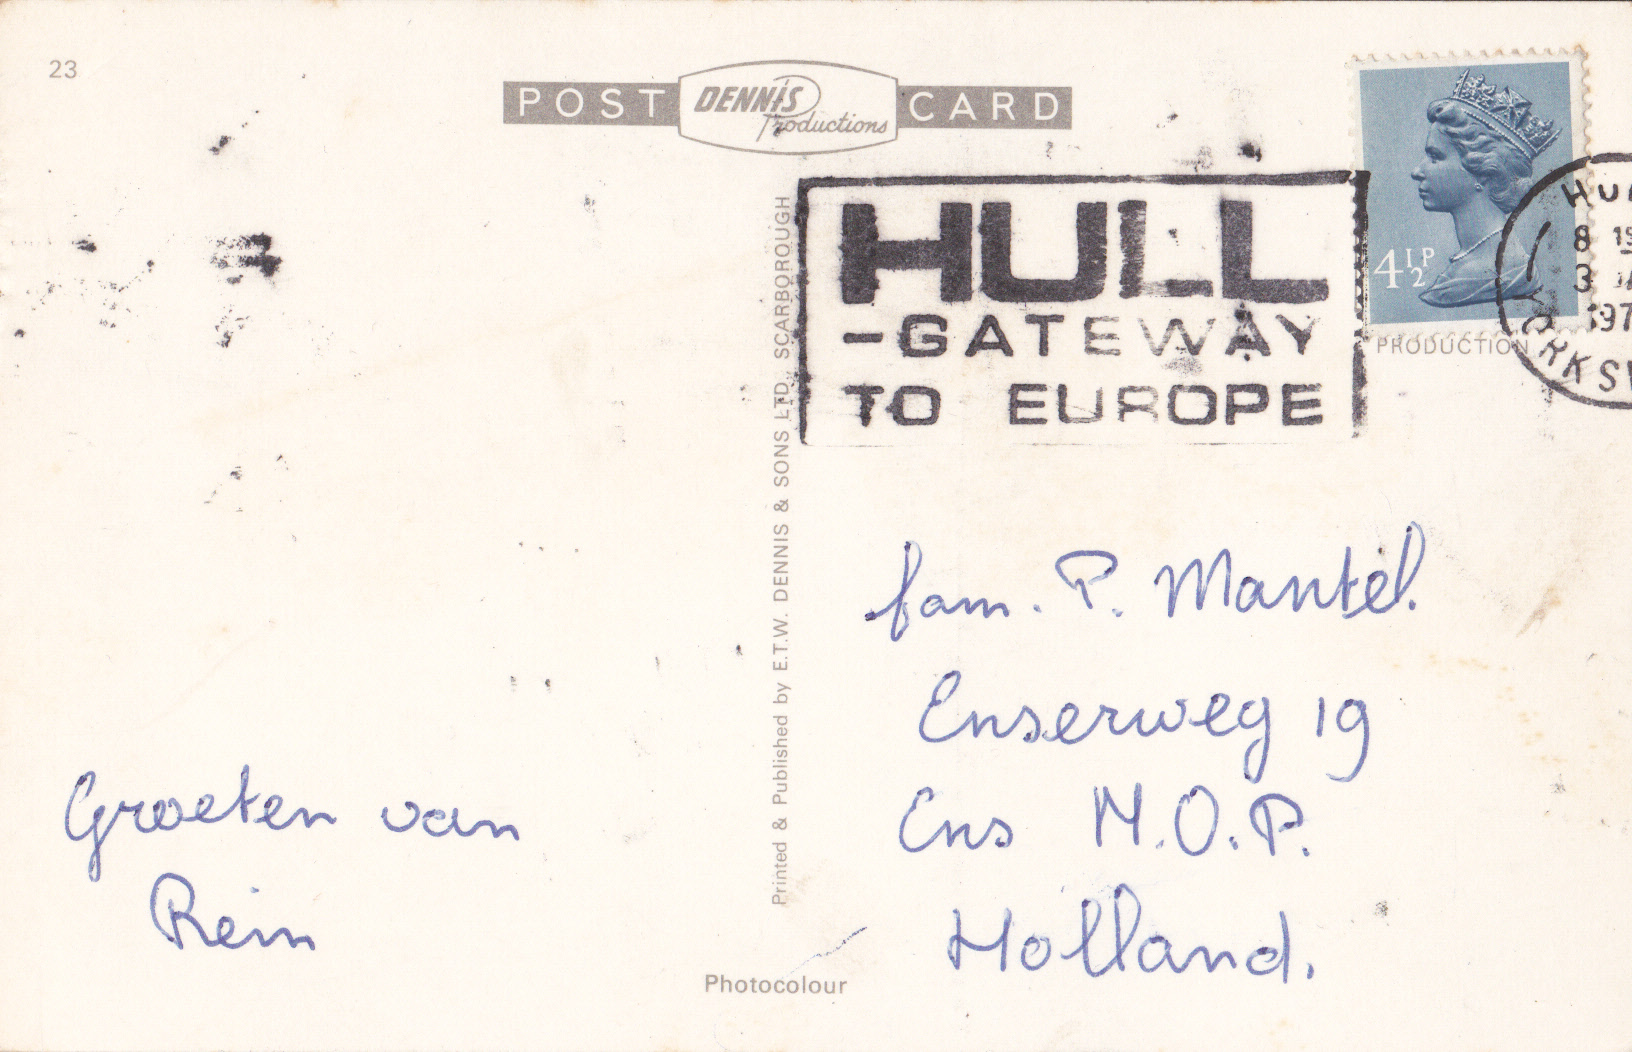 23
POST DENNIS Productions CARD
HULL
-GATEWAY
TO EUROPE
4½P
8
3
197
PRODUCTION
Printed & Published by E.T.W. DENNIS & SONS LTD., SCARBOROUGH
fam. P. Mantel.
Enserweg 19
Ens N.O.P.
Holland.
Groeten van
Rein
Photocolour